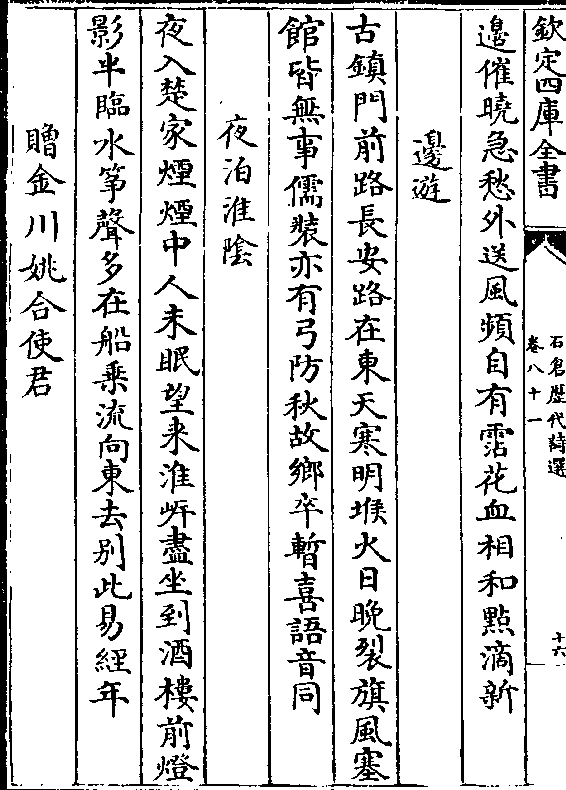 欽定四庫全書
石倉歷代詩選
卷八十一
十六
邊催曉急愁外送風頻自有霑花血相和點滴新
邊遊
古鎮門前路長安路在東天寒明堠火日晚裂旗風塞
館皆無事儒裝亦有弓防秋故鄉卒暫喜語音同
夜泊淮陰
夜入楚家煙煙中人未眠望来淮岍盡坐到酒樓前燈
影半臨水筝聲多在船乗流向東去别此易經年
贈金川姚合使君